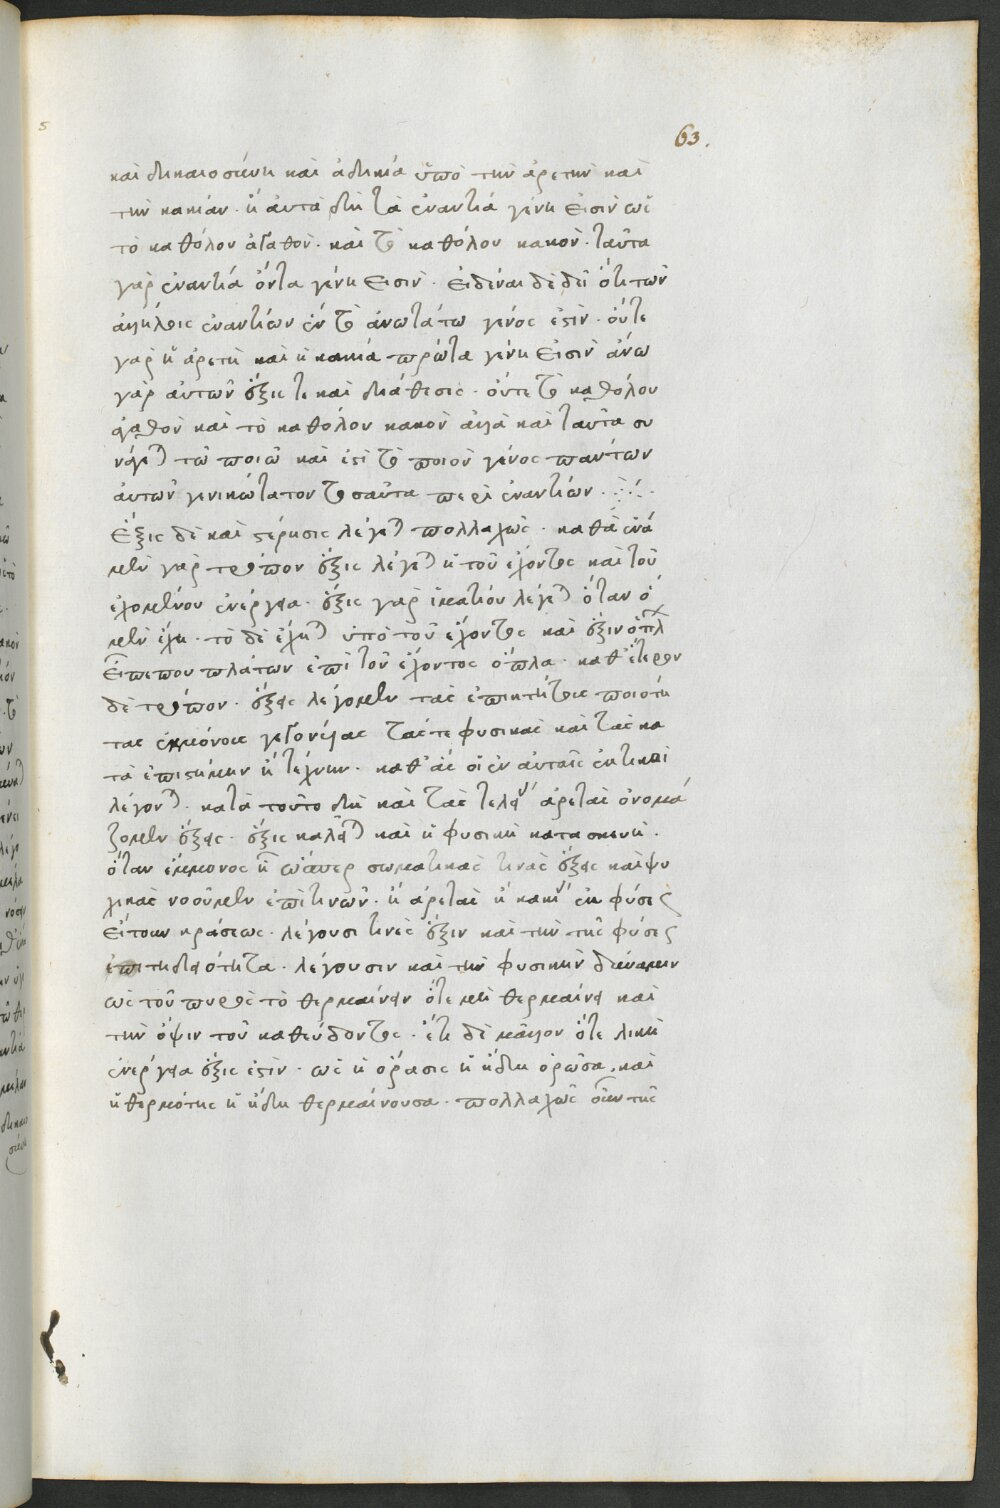 63.
καὶ δικαιοσύνη καὶ ἀδικία ὑπὸ τὴν ἀρετὴν καὶ
τὴν κακίαν. ἢ αὐτὰ δὴ τὰ ἐναντία γένη εἰσὶν ὡς
τὸ καθόλου ἀγαθὸν. καὶ τὸ καθόλου κακὸν. ταῦτα
γὰρ ἐναντία ὄντα γένη εἰσὶν. εἰδέναι δὲ δεῖ ὅτι τῶν
ἀλλήλοις ἐναντίων ἓν τὸ ἀνωτάτω γένος ἐστὶν. οὔτε
γὰρ ἡ ἀρετὴ καὶ ἡ κακία πρῶτα γένη εἰσὶν ἄνω
γὰρ αὐτῶν ἕξις τε καὶ διάθεσις. οὔτε τὸ καθόλου
ἀγαθὸν καὶ τὸ καθόλου κακὸν ἀλλὰ καὶ ταῦτα συ
νάγεται τῶ ποιῶ καὶ ἐστὶ τὸ ποιὸν γένος πάντων
αὐτῶν γενικώτατον τοσαῦτα περὶ ἐναντίων.
Ἕξις δὲ καὶ στέρησις λέγεται πολλαχῶς. καθ' ἕνα
μὲν γὰρ τρόπον ἕξις λέγεται ἡ τοῦ ἔχοντος καὶ τοῦ
ἐχομένου ἐνέργεια. ἕξις γὰρ ἱματίου λέγεται ὅταν ὁ
μὲν ἔχη. τὸ δὲ ἔχηται ὑπὸ τοῦ ἔχοντος καὶ ἕξιν ὅπλ
εἶπέ που πλάτων ἐπὶ τοῦ ἔχοντος ὅπλα. καθ' ἕτερον
δὲ τρόπον. ἕξεις λέγομεν τὰς ἐπικτήτους ποιότη
τας ἐμμόνους γεγονυίας τάς τε φυσικὰς καὶ τὰς κα
τὰ ἐπιστήμην ἢ τέχνην. καθ' ἃς οἱ ἐν αὐταῖς ἑκτικοὶ
λέγονται. κατὰ τοῦτο δὴ καὶ τὰς τελείας ἀρετὰς ὀνομά
ζομεν ἕξεις. ἕξις καλεῖται καὶ ἡ φυσικὴ κατασκευὴ.
ὅταν ἔμμονος ἦ ὥσπερ σωματικάς τινας ἕξεις καὶ ψυ
χικὰς νοοῦμεν ἐπὶ τινῶν. ἢ ἀρετὰς ἢ κακίας ἐκ φύσεως
εἴτουν κράσεως. λέγουσι τινὲς ἕξιν καὶ τὴν τῆς φύσεως
ἐπιτηδειότητα. λέγουσιν καὶ τὴν φυσικὴν δύναμιν
ὡς τοῦ πυρὸς τὸ θερμαίνειν ὅτε μὴ θερμαίνει καὶ
τὴν ὄψιν τοῦ καθεύδοντος. ἔτι δὲ μᾶλλον ὅτε
ἐνέργεια ἕξις ἐστὶν. ὡς ἡ ὅρασις ἡ ἤδη ὁρῶσα. καὶ
ἡ θερμότης ἡ ἤδη θερμαίνουσα. πολλαχῶς οὖν τῆς